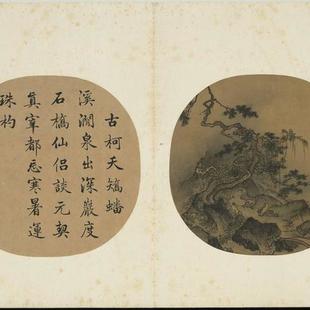 古柯夭矯蟠
溪澗泉出深巖度
石橋仙侶談元契
真宰都忘寒暑運
珠杓